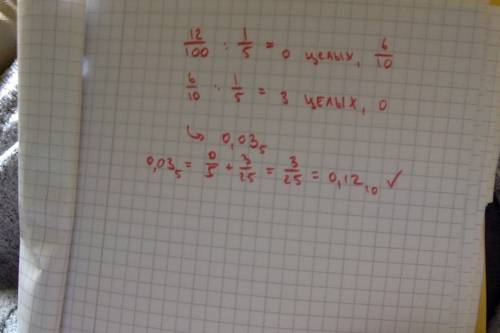 12/100 : 1/5 = 0 целых, 6/10
6/10 : 1/5 = 3 целых, 0
↳ 0,03₅
0,03₅ = 0/5 + 3/25 = 3/25 = 0,12₁₀ ✓